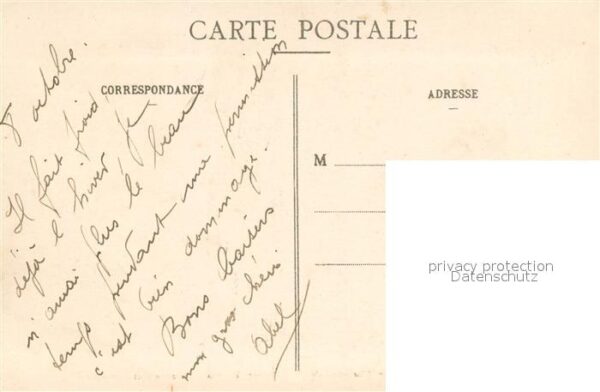 CARTE POSTALE
CORRESPONDANCE
ADRESSE
M
8 octobre.
Il fait froid
déjà l'hiver je
n'aurai plus le beau
temps pendant ma permission
c'est bien dommage.
Bons baisers
mon gros chéri
Abel
privacy protection
Datenschutz